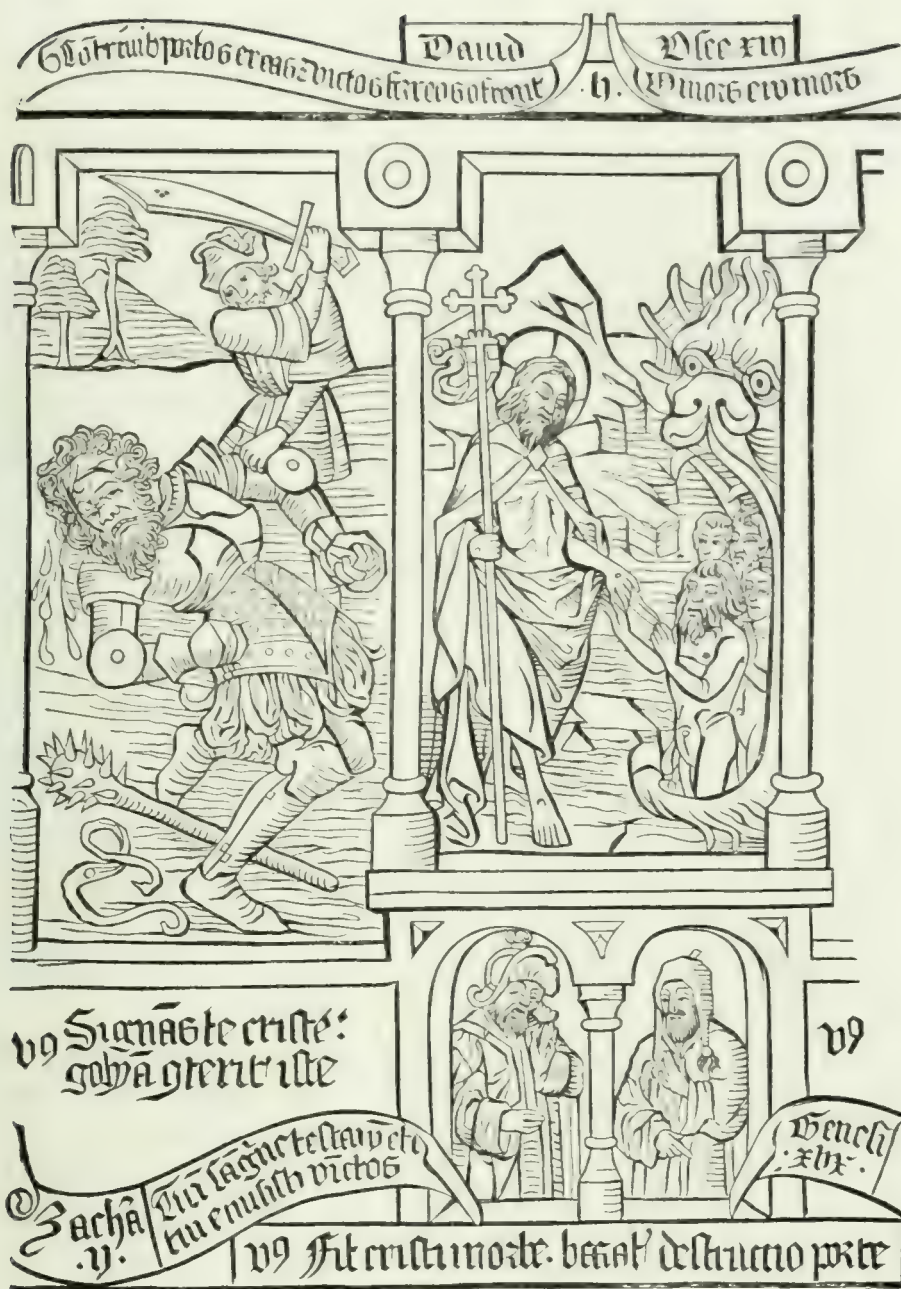 Cōtriuit portas ereas z vectes ferreos ofregit
Dauid
.h.
Osee xiii
O mors ero mors
v9 Signās te criste:
golyā gterit iste
v9
Zachā
.ij.
sāgīe testamēti
tui emisisti vīctos
Genesi
.xlix.
v9 Fit cristi morte. barat' destructio porte